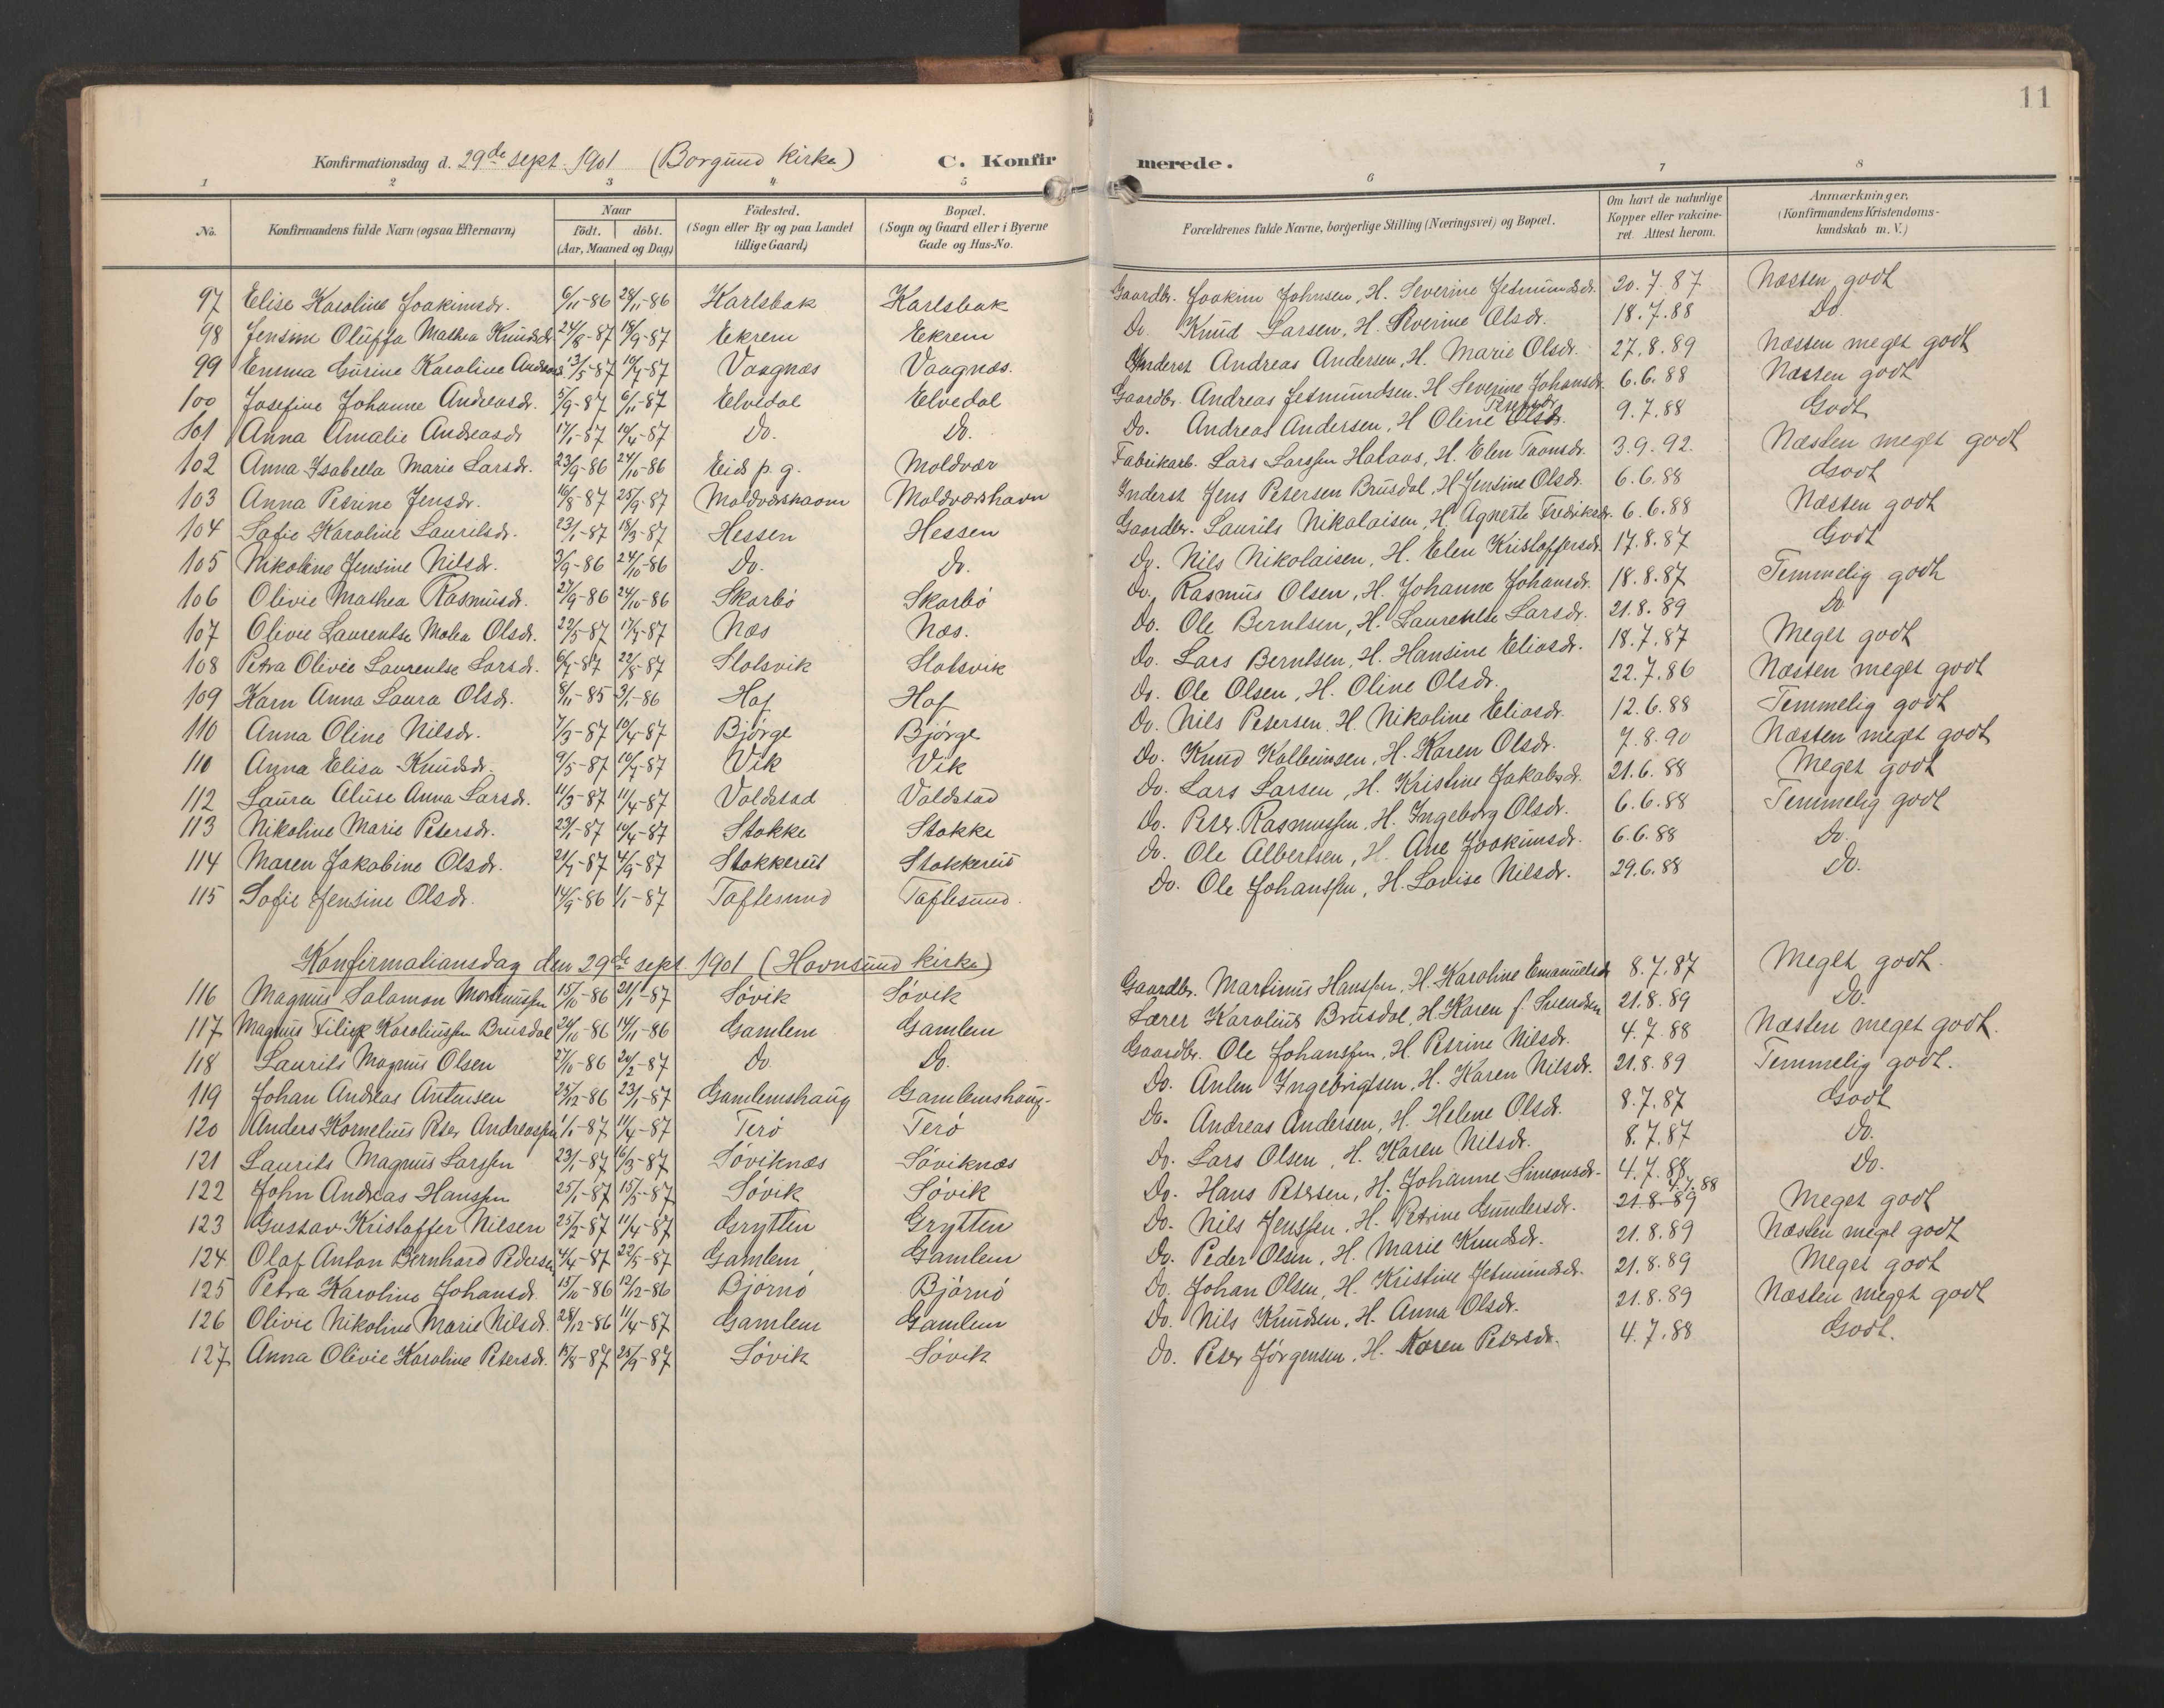 11
Konfirmationsdag d. 29de sept. 1901 (Borgund kirke) C. Konfirmerede.
1 2 3 4 5 6 7 8
No. Konfirmandens fulde Navn (ogsaa Efternavn) Naar födt. döbt. (Aar, Maaned og Dag) Födested. (Sogn eller By og paa Landet tillige Gaard) Bopæl. (Sogn og Gaard eller i Byerne Gade og Hus-No. Forældrenes fulde Navne, borgerlige Stilling (Næringsvei) og Bopæl. Om havt de naturlige Kopper eller vakcineret. Attest herom. Anmærkninger. (Konfirmandens Kristendomskundskab m. V.)
97 Elise Karoline Joakimsdr. 6/11-86 28/11-86 Karlsbak Karlsbak Gaardbr. Joakim Johnsen, H. Severine Jetmundsdr. 20.7.87 Næsten godt
98 Jensine Oluffa Mathea Knudsdr. 24/8-87 18/9-87 Ekrem Ekrem Do. Knud Larsen, H. Severine Olsdr. 18.7.88 Do.
99 Emma Gurine Karoline Andersd 13/5-87 10/7-87 Vaagnæs Vaagnæs. Inderst Andreas Andersen, H. Marie Olsdr. 27.8.89 Næsten meget godt
100 Josefine Johanne Andreasdr. 5/9-87 6/11-87 Elvedal Elvedal Gaardbr. Andreas Jetmundsen. H Severine Johansdr. 6.6.88 Næsten godt
101 Anna Amalie Andreasdr 17/1-87 10/4-87 Do. Do. Do. Andreas Andersen, H Oline Olsdr. Petersdr. 9.7.88 Godt
102 Anna Isabella Marie Larsdr. 23/9-86 24/10-86 Eid p. g. Moldvær Fabrikarb. Lars Larssen Hataas, H. Elen Taansdr. 3.9.92. Næsten meget godt
103 Anna Petrine Jensdr. 16/8-87 25/9-87 Moldværshavn Moldværshavn Inderst Jens Petersen Brusdal, H. Jensine Olsdr. 6.6.88 Godt
104 Sofie Karoline Lauritsdr. 23/1-87 18/3-87 Hessen Hessen Gaardbr. Laurits Nikolaisen, H. Agnette Fredriksdr. 6.6.88 Næsten godt
105 Nikoline Jensine Nilsdr. 3/9-86 24/10-86 Do. Do. Do. Nils Nikolaisen, H. Elen Kristoffersdr. 17.8.87 Godt
106 Olivie Mathea Rasmusdr. 27/9-86 24/10-86 Skarbö Skarbö Do. Rasmus Olsen, H. Johanne Johansdr. 18.8.87 Temmelig godt
107 Olivie Laurentse Molea Olsdr. 22/5-87 17/7-87 Næs Næs. Do. Ole Berntsen, H. Laurentse Larsdr. 21.8.89 Do
108 Petra Olivie Laurentse Larsdr. 6/7-87 22/8-87 Slotsvik Slotsvik Do. Lars Berntsen, H. Hansine Eliasdr. 18.7.87 Meget godt
109 Karn Anna Laura Olsdr. 8/11-85 3/1-86 Hof Hof Do. Ole Olsen, H. Oline Olsdr. 22.7.86 Næsten meget godt
110 Anna Oline Nilsdr. 7/3-87 10/4-87 Bjørge Bjørge Do. Nils Petersen H. Nikoline Eliasdr. 12.6.88 Temmelig godt
110 Anna Elisa Knudsdr. 9/5-87 10/7-87 Vik Vik Do. Knud Kolbeinsen, H. Karen Olsdr. 7.8.90 Næsten meget godt
112 Laura Aluse Anna Larsdr. 11/3-87 11/4-87 Valdstad Valdstad Do. Lars Larsen, H. Kristine Jakobsdr. 21.6.88 Meget godt
113 Nikoline Marie Petersdr. 23/1-87 10/4-87 Stokke Stokke Do. Peter Rasmussen, H. Ingeborg Olsdr. 6.6.88 Temmelig godt
114 Maren Jakobine Olsdr. 21/7-87 4/9-87 Stokkereit Stokkereit Do. Ole Albertsen, H. Ane Joakimsdr. 6.6.88 Do.
115 Sofie Jensine Olsdr. 14/9-86 1/1-87 Taftesund Taftesund. Do. Ole Johanssen, H. Lovise Nilsdr. 29.6.88 Do.
Konfirmationsdag den 29de sept 1901 (Havnsund kirke)
116 Magnus Salamon Martinussen 15/10-86 21/1-87 Søvik Søvik Gaardbr. Martinus Hanssen, H. Karoline Emanuelsdr 8.7.87 Meget godt.
117 Magnus Filip Karoliussen Brusdal 24/10-86 14/11-86 Gamlem Gamlem Lærer Karolius Brusdal, H. Karen f. Svendsen 21.8.89 Do.
118 Laurits Magnus Olsen 27/10-86 24/2-87 Do. Do. Gaardbr. Ole Johanssen, H. Petrine Nilsdr. 4.7.88 Næsten meget godt.
119 Johan Andreas Antensen 25/12-86 23/1-87 Gamlemshaug Gamlemshaug. Do. Anten Ingebrigtsen, H. Karen Nilsdr. 21.8.89 Temmelig godt.
120 Anders Kornelius Peter Andreassen 1/1-87 11/4-87 Terö Terö Do. Andreas Andersen, H. Helene Olsdr. 8.7.87 Godt
121 Laurits Magnus Larssen 23/1-87 16/3-87 Søviknæs Søviknæs Do. Lars Olsen, H. Karen Nilsdr. 8.7.87 Do.
122 John Andreas Hanssen 25/1-87 15/5-87 Søvik Søvik Do. Hans Petersen, H. Johanne Simonsdr. 4.7.88 Do.
123 Gustav Kristoffer Nilsen 25/2-87 11/4-87 Grytten Grytten Do. Nils Jenssen, H. Petrine Gundersdr. 21.8.89 4.7.88 Meget godt
124 Olaf Anton Bernhard Pedersen 4/4-87 22/5-87 Gamlem Gamlem Do. Peder Olsen, H. Marie Knudsdr. 21.8.89 Næsten meget godt
125 Petra Karoline Johansdr. 15/10-86 12/12-86 Bjørnö Bjørnö Do. Johan Olsen, H. Kristine Jetmundsdr. 21.8.89 Meget godt
126 Olivie Nikoline Marie Nilsdr. 28/12-86 11/4-87 Gamlem Gamlem Do. Nils Knudsen, H. Anna Olsdr. 21.8.89 Næsten meget godt
127 Anna Olivie Karoline Petersdr. 15/8-87 25/9-87 Søvik Søvik Do. Peter Jørgensen, H. Karen Petersdr. 4.7.88 Godt.